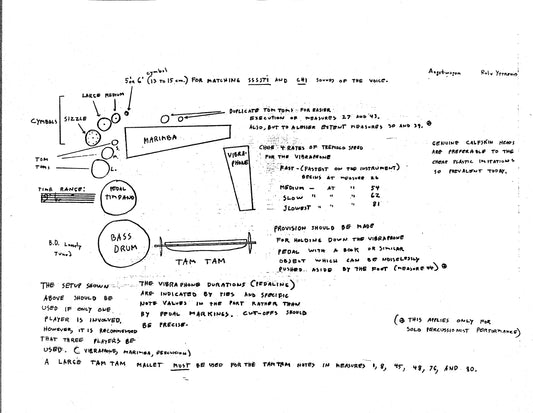 cymbal
5" or 6" (13 to 15 cm.) FOR MATCHING SSSSTI AND CHI SOUNDS OF THE VOICE.
LARGE MEDIUM
CYMBALS
SIZZLE
DUPLICATE TOM TOMS FOR EASIER
EXECUTION OF MEASURES 27 AND 43.
ALSO, BUT TO A LESSER EXTENT MEASURES 30 AND 39. ⊕
MARIMBA
VIBRA-
PHONE
TOM
TOMS
S.
M.
L.
CHOSE 4 RATES OF TREMOLO SPEED
FOR THE VIBRAPHONE
FAST - (FASTEST ON THE INSTRUMENT)
BEGINS AT MEASURE
MEDIUM - AT " 54
SLOW " " " 62
SLOWEST " " " 81
GENUINE CALFSKIN HEADS
ARE PREFERABLE TO THE
CHEAP PLASTIC IMITATIONS
SO PREVALENT TODAY.
RANGE:
PEDAL
TIMPANO
BASS
DRUM
B.D. Loosely
Tuned
TAM TAM
PROVISION SHOULD BE MADE
FOR HOLDING DOWN THE VIBRAPHONE
PEDAL WITH A BOOK OR SIMILAR
OBJECT WHICH CAN BE NOISELESSLY
PUSHED ASIDE BY THE FOOT (MEASURE 40) ⊕
THE SETUP SHOWN
ABOVE SHOULD BE
USED IF ONLY ONE
PLAYER IS INVOLVED,
HOWEVER, IT IS RECOMMENDED
THAT THREE PLAYERS BE
USED. (VIBRAPHONE, MARIMBA, PERCUSSION)
THE VIBRAPHONE DURATIONS (PEDALING)
ARE INDICATED BY TIES AND SPECIFIC
NOTE VALUES IN THE PART RATHER THAN
BY PEDAL MARKINGS. CUT-OFFS SHOULD
BE PRECISE.
(⊕ THIS APPLIES ONLY FOR
SOLO PERCUSSIONIST PERFORMANCE)
A LARGE TAM TAM MALLET MUST BE USED FOR THE TAM TAM NOTES IN MEASURES 1, 8, 45, 48, 76, AND 80.